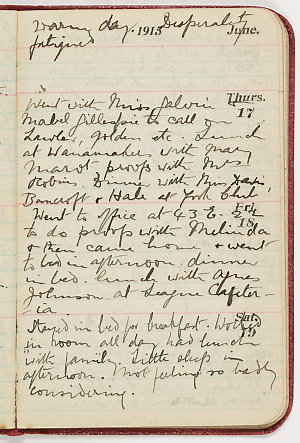 warm day. 1915 Desperately June.
fatigued
Thurs.
Went with Miss Galvin &
17
Mabel Gillespie to call on
Lawler, Golden etc. Lunch
at Wanamakers with Mary
Marot proofs with Mrs
Robins. Dinner with Mrs
Bancroft & Hale at York Club
Fri.
Went to office at 43 E. 22
18
to do proofs with Melinda
& then came home & went
to bed in afternoon. dinner
in bed. lunch with Agnes
Johnson at League Cafeter-
ia
Sat.
Stayed in bed for breakfast. Worked
19
in room all day had lunch
with family. Little sleep in
afternoon. Not feeling so badly
considering.